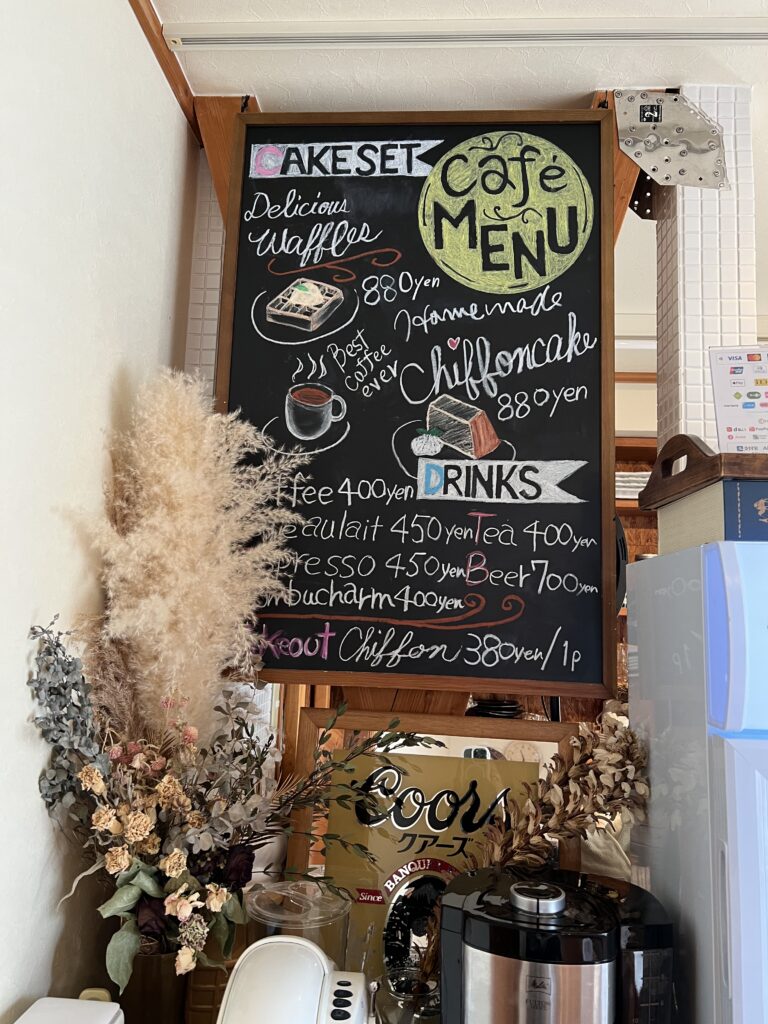 CAKESET
Café
MENU
Delicious
Waffles
880yen
Homemade
Chiffoncake
880yen
Best
coffee
ever
DRINKS
ffee 400yen
eaulait 450yen Tea 400yen
presso 450yen Beer 700yen
mbucharm 400yen
keout Chiffon 380yen/1p
Coors
クアーズ
BANQU
Since
VISA
2
Melitta